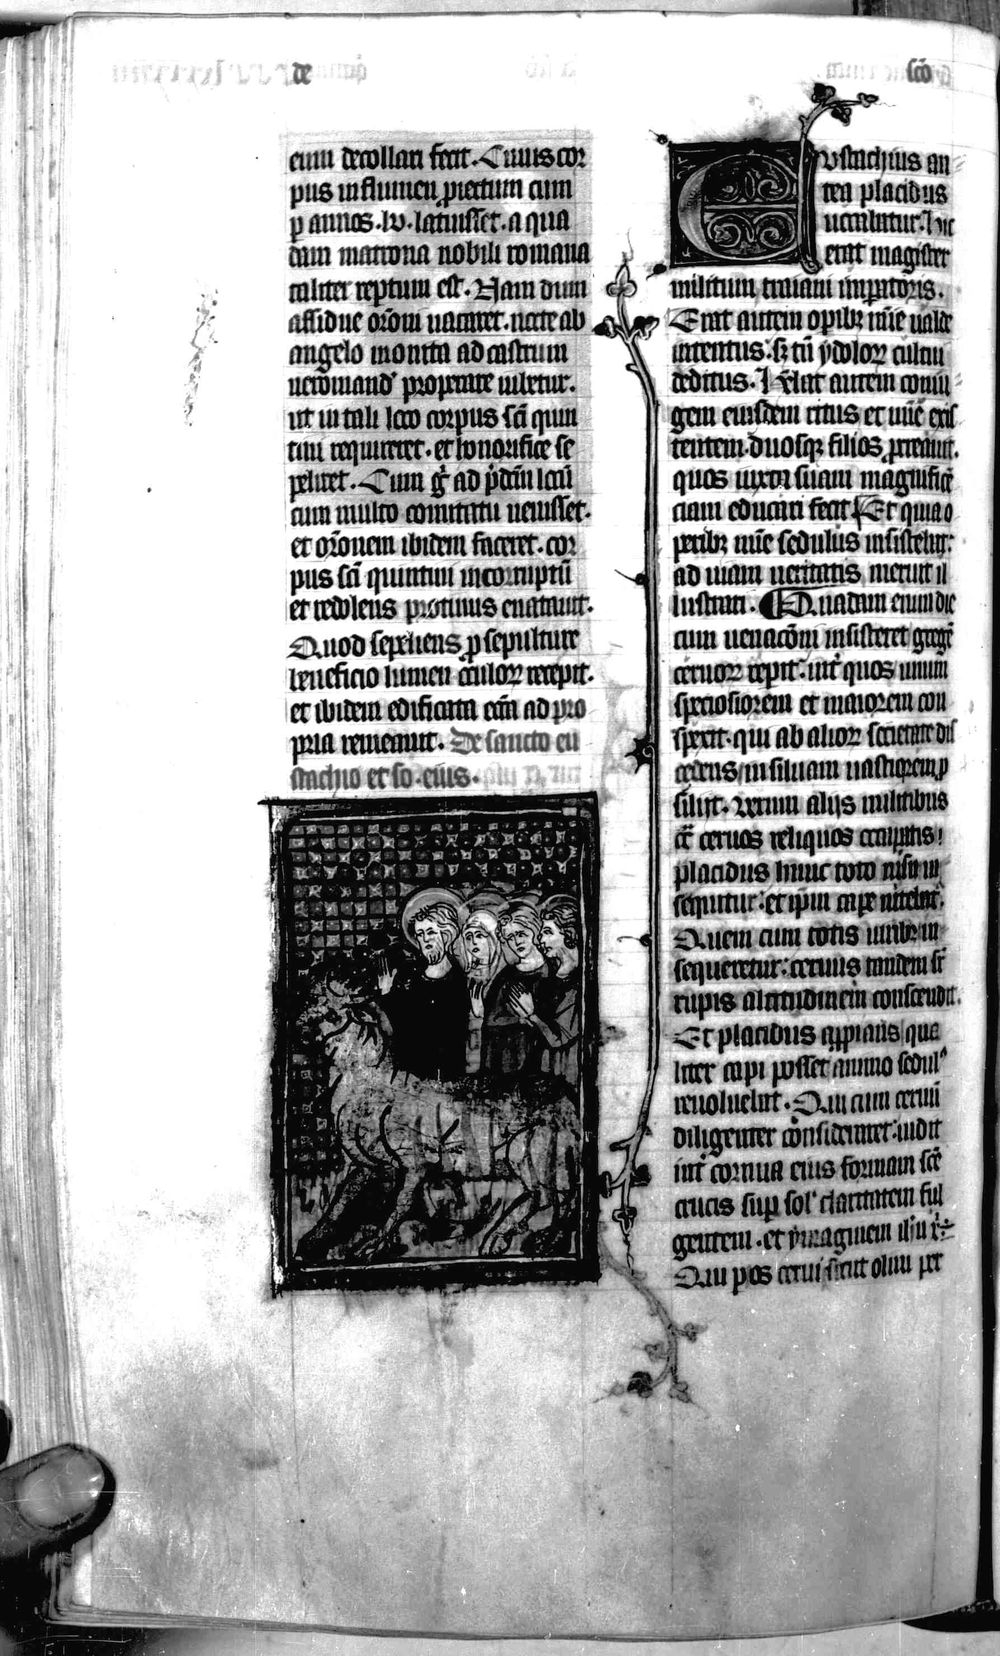 de sco
eum decollari fecit. Cuius cor
pus in flumen proiectum cum
ꝑ annos .lv. latuisset. a qua
dam matrona nobili romana
taliter reptum est. Nam dum
assidue orōni uacaret. nocte ab
angelo monita ad castrum
ueromand' properare iubetur.
ut in tali loco corpus scī quin
tini requireret. et honorifice se
peliret. Cum gͦ ad p̄dcm̄ locū
cum multo comitatu uenisset.
et orōnem ibidem faceret. cor
pus scī quintini incorruptū
et redolens protinus enatauit.
Quod sepeliens ꝓ sepulture
beneficio lumen oculoꝝ recepit.
et ibidem edificata ecc̄a ad pro
pria remeauit. De sancto eu
stachio et so. eius.
Eustachius an
tea placidus
uocabatur. hic
erat magister
militum traiani imꝑatoris.
Erat autem oꝑibꝫ mīe ualde
intentus. sꝫ tn̄ ydoloꝝ cultui
deditus. Habebat autem coniu
gem eiusdem ritus et mīe exis
tentem. duosqꝫ filios procreauit.
quos iuxta suam magnificē
ciam educari fecit Et quia o
peribꝫ mīe sedulus insistebat.
ad uiam ueritatis meruit il
lustrari. Quadam enim die
cum uenacōni insisteret gregē
ceruoꝝ reperit. int' quos unum
speciosiorem et maiorem con
spexit. qui ab alioꝝ societate dis
cedens in siluam uastiorem ꝓ
siliit. Uerum alijs militibus
cͣ ceruos reliquos occupatis.
placidus hunc toto nisu in
sequitur. et ipm̄ capere nitebat'.
Quem cum totis uiribꝫ in
sequeretur. ceruus tandem sr̄
rupis altitudinem conscendit.
Et placidus appians qua
liter capi posset animo sedul'
reuoluebat. Qui cum ceruū
diligenter cōsideraret. uidit
int' cornua eius formam scē
crucis sup̱ sol' claritatem ful
gentem. et ymaginem ihu xͥ.
Qui ꝑ os cerui sicut olim per